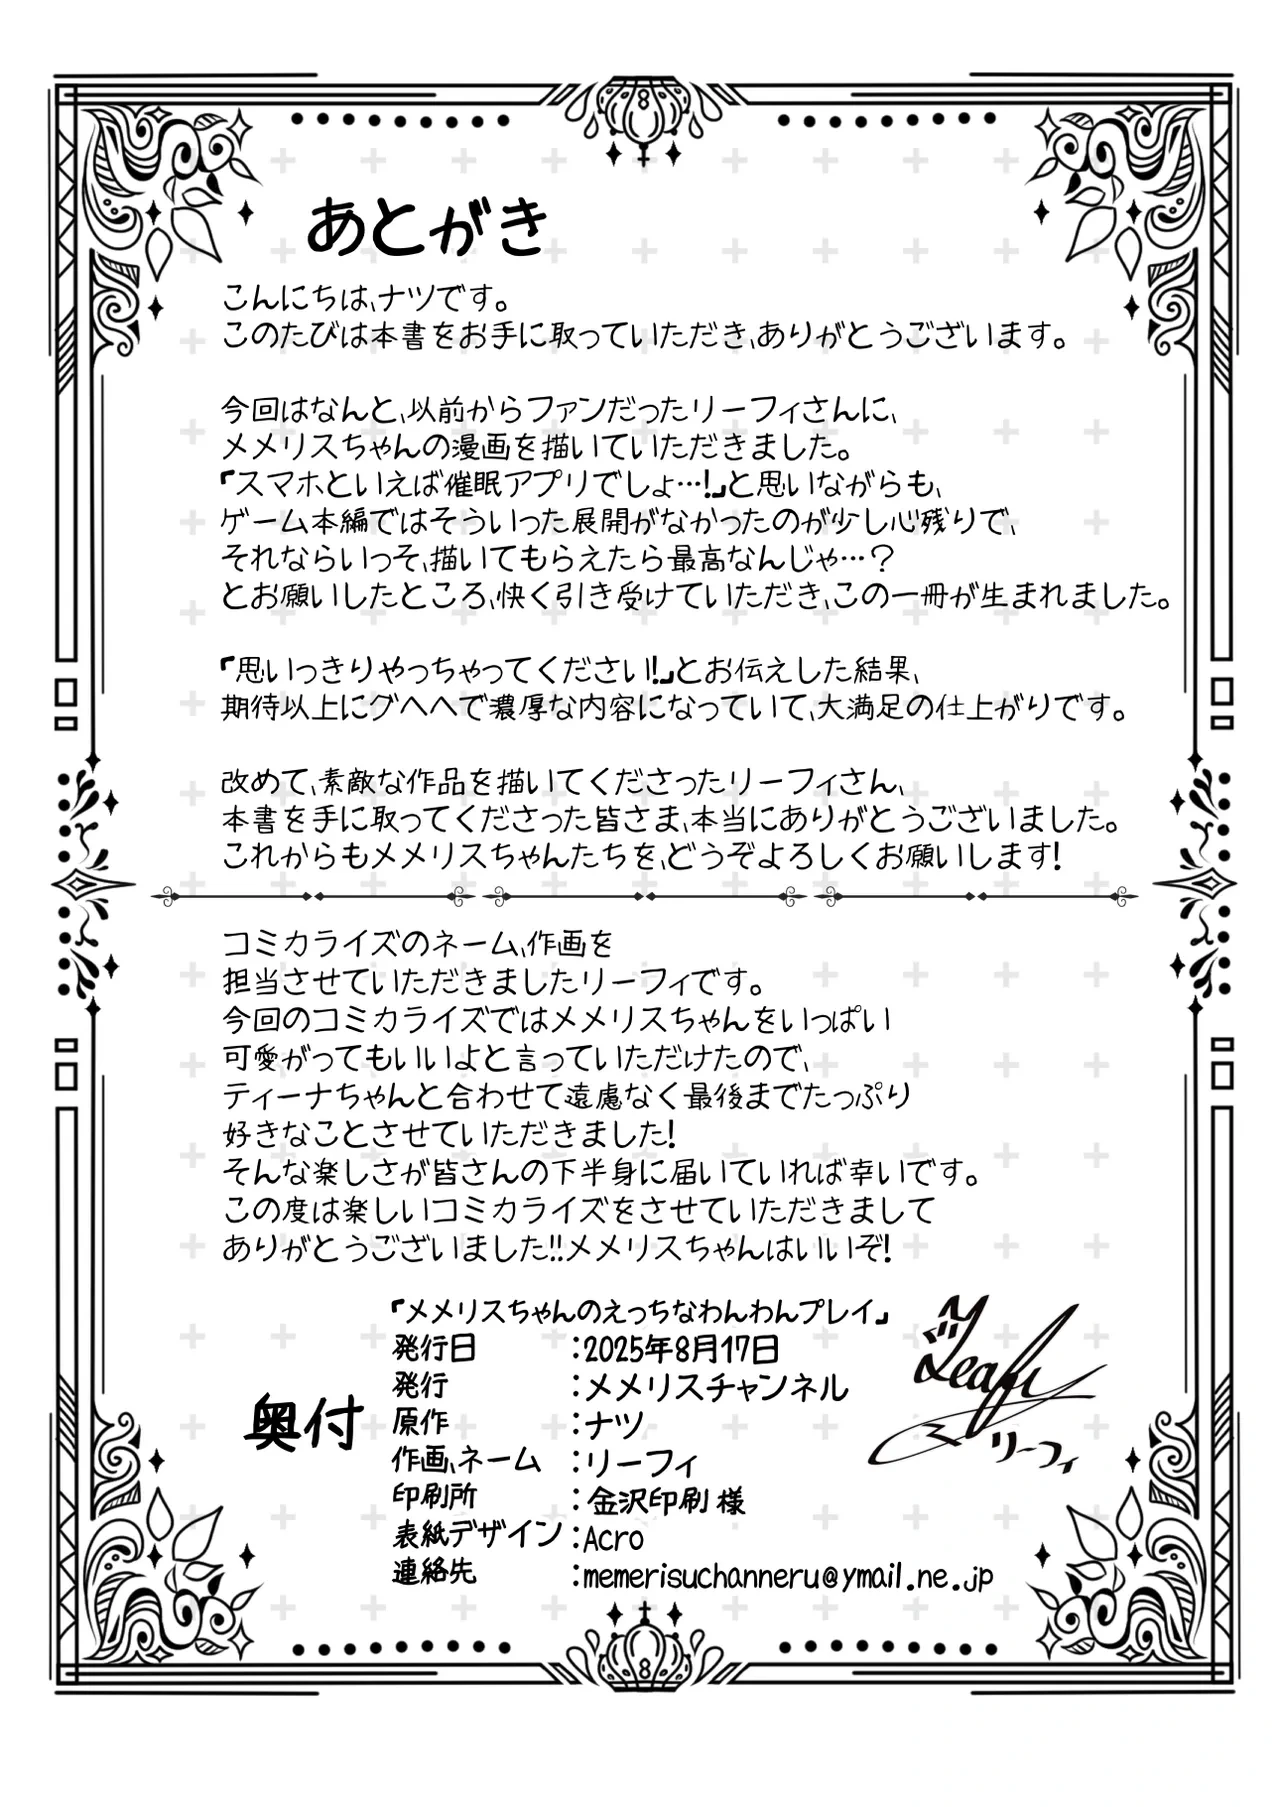 あとがき
こんにちは、ナツです。
このたびは本書をお手に取っていただき、ありがとうございます。
今回はなんと、以前からファンだったリーフィさんに、
メメリスちゃんの漫画を描いていただきました。
『スマホといえば催眠アプリでしょ…!』と思いながらも、
ゲーム本編ではそういった展開がなかったのが少し心残りで、
それならいっそ、描いてもらえたら最高なんじゃ…？
とお願いしたところ、快く引き受けていただき、この一冊が生まれました。
『思いっきりやっちゃってください!』とお伝えした結果、
期待以上にグへへで濃厚な内容になっていて、大満足の仕上がりです。
改めて、素敵な作品を描いてくださったリーフィさん、
本書を手に取ってくださった皆さま、本当にありがとうございました。
これからもメメリスちゃんたちを、どうぞよろしくお願いします!
コミカライズのネーム、作画を
担当させていただきましたリーフィです。
今回のコミカライズではメメリスちゃんをいっぱい
可愛がってもいいよと言っていただけたので、
ティーナちゃんと合わせて遠慮なく最後までたっぷり
好きなことさせていただきました!
そんな楽しさが皆さんの下半身に届いていれば幸いです。
この度は楽しいコミカライズをさせていただきまして
ありがとうございました!!メメリスちゃんはいいぞ!
『メメリスちゃんのえっちなわんわんプレイ』
奥付
発行日 :2025年8月17日
発行 :メメリスチャンネル
原作 :ナツ
作画、ネーム :リーフィ
印刷所 :金沢印刷 様
表紙デザイン :Acro
連絡先 :memerisuchanneru@ymail.ne.jp
Leafy
リーフィ